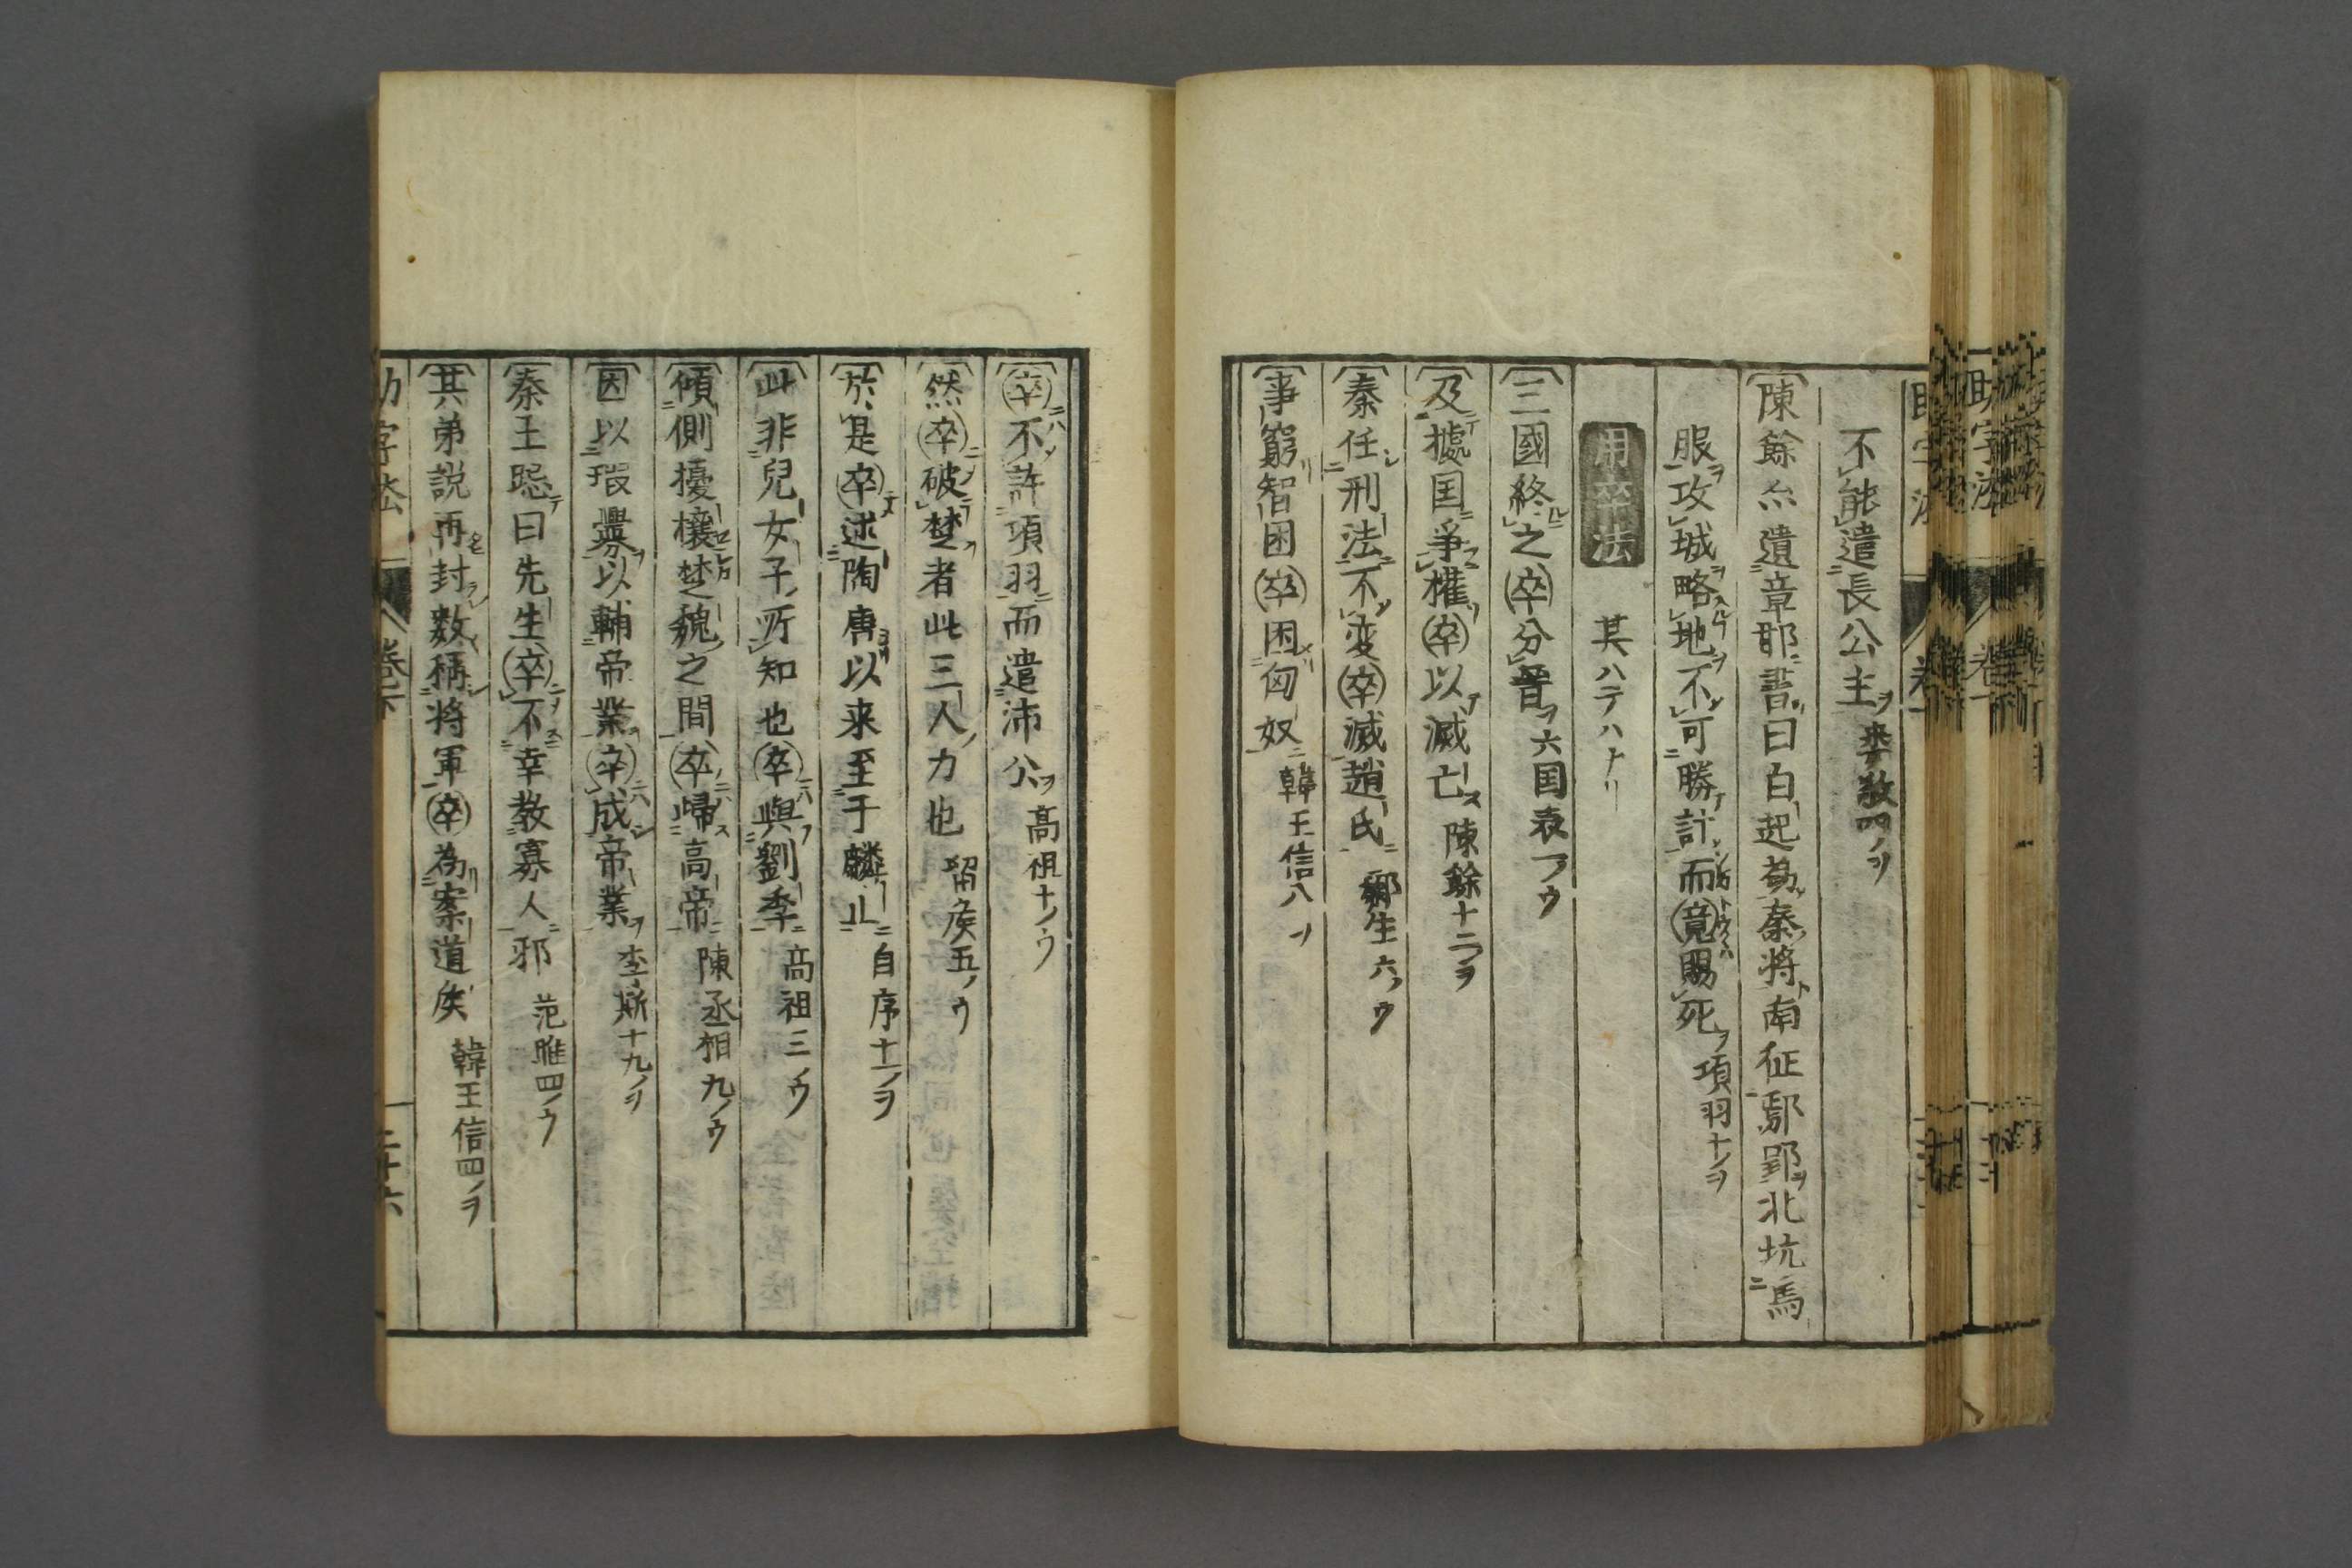 不能遣長公主 婁敬四ノヲ
陳餘亦遺章邯書曰白起為秦将南征鄢郢北坑馬
服攻城略地不可勝計而竟賜死 項羽十ノヲ
用卒法 其ハテハナリ
三國終之卒分晋 六国表一ノウ
及據国争権卒以滅亡 陳餘十二ノヲ
秦任刑法不変卒滅趙氏 酈生六ノウ
事窮智困卒困匈奴 韓王信八ノ
卒不許項羽而遣沛公 高祖十ノウ
然卒破楚者此三人力也 留侯五ノウ
於是卒述陶唐以来至于麟止 自序十一ノヲ
此非兒女子所知也卒與劉季 高祖三ノウ
傾側擾攘楚魏之間卒歸高帝 陳丞相九ノウ
因以瑕釁以輔帝業卒成帝業 李斯十九ノヲ
秦王跽曰先生卒不幸教寡人邪 范雎四ノウ
其弟説再封数稱将軍卒為案道侯 韓王信四ノヲ
助字法 巻下 二十六